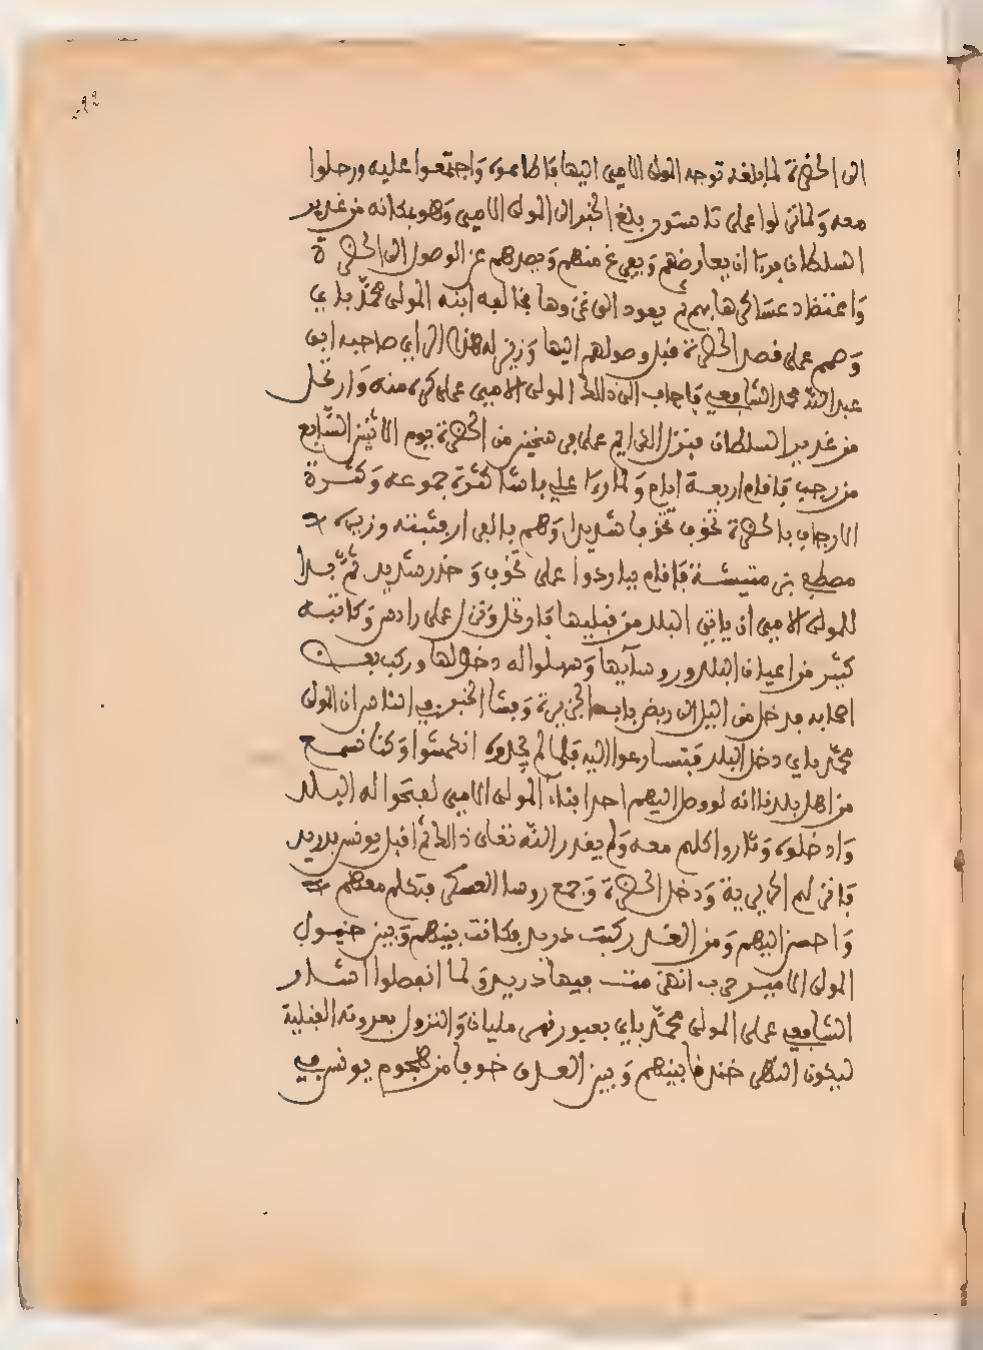 الى الحضرة لما بلغه توجه المولى الامير اليها فاطاعوه واجتمعوا عليه ورحلوا
معه ولما نزلوا على تاستور بلغ الخبر الى المولى الامير وهو بمكانه من غدير
السلطان فرءا ان يعارضهم ويفرغ منهم ويصدهم عن الوصول الى الحضرة
واعتضاد عساكرها بهم ثم يعود الى غزوها فخالفه ابنه المولى محمد باي
وصمم على قصد الحضرة قبل وصولهم اليها وزين له هذا الراي صاحبه ابو
عبد الله محمد الشافعي فاجاب الى ذالك المولى الامير على كره منه وارتحل
من غدير السلطان فنزل الفراني على فرسخين من الحضرة يوم الاثنين السابع
من رجب فاقام اربعة ايام ولما رءا علي باشا كثرة جموعه وكثرة
الارجاف بالحضرة تخوف تخوفا شديدا وهم بالفرار فثبته وزيره
مصطفى بن متيشة فاقام بباردوا على تخوف وحذر شديد ثم بدا
للمولى الامير ان ياتي البلد من قبليها فارتحل ونزل على رادس وكاتبه
كثير من اعيان البلد وروسآيها وسهلوا له دخولها وركب بعض
اصحابه فدخل من الليل الى ربض باب الجزيرة وفشا الخبر في الناس ان المولى
محمد باي دخل البلد فتسارعوا اليه فلما لم يجدوه انكمشوا وكنا نسمع
من اهل بلدنا انه لو وصل اليهم احد ابنآء المولى الامير لفتحوا له البلد
وادخلوه وثاروا كلهم معه ولم يقدر الله تعالى ذالك ثم اقبل يونس بدريد
فانزلهم الحرايرية ودخل الحضرة وجمع روسا العسكر فتكلم معهم
واحسن اليهم ومن الغد ركبت دريد فكانت بينهم وبين خيول
المولى الامير حرب انهزمت فيها دريد ولما انفصلوا اشار
الشافعي على المولى محمد باي بعبور نهر مليان والنزول بعدوته القبلية
ليكون النهر خندقا بينهم وبين العدو خوفا من هجوم يونس في